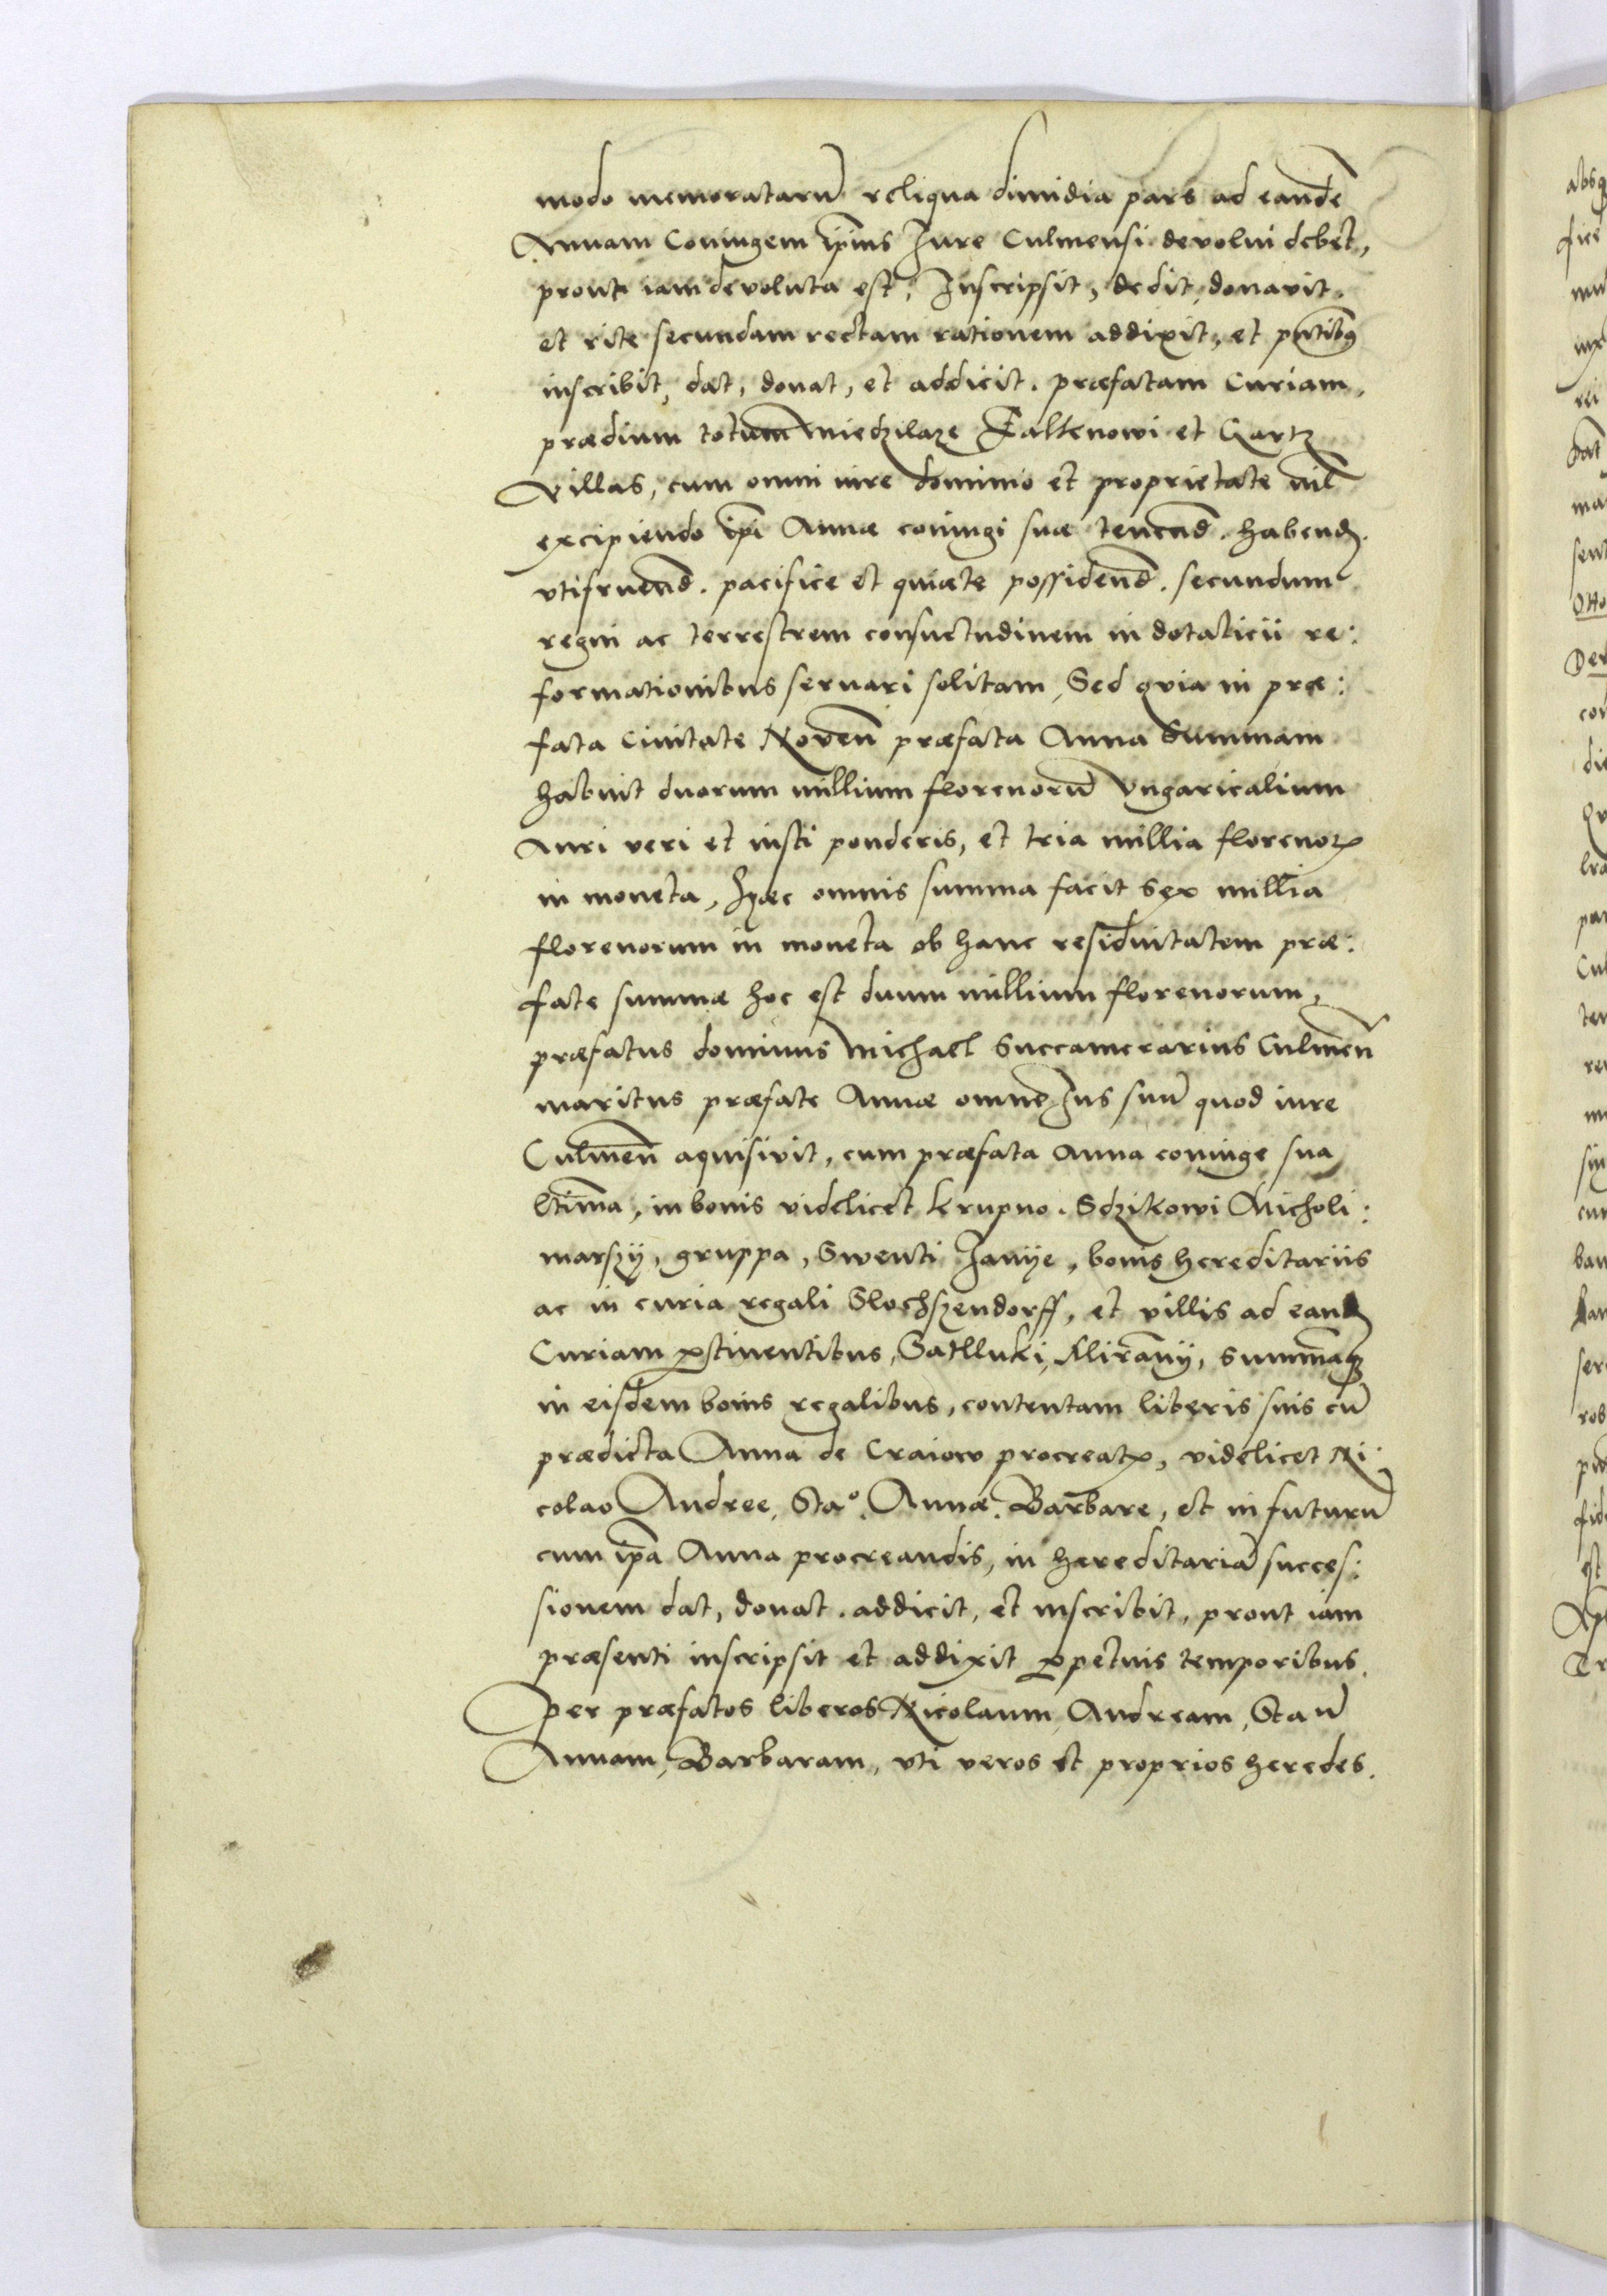 modo memoratarū reliqua dimidia pars ad eandē
Annam Coniugem ip̄ius Iure Culmensi deuolui debet,
prout iam deuoluta est, Inscripsit, dedit, donavit,
et rite secundam rectam rationem addixit, et pn̄tibus
inscribit, dat, donat, et addicit. præfatam Curiam,
prædium totum miedzilaze Falkenowi et Gartz
villas, cum omni iure dominio et proprietate nil
excipiendo ip̄i Annæ coniugi suæ tenend. habend.
vtifruend. pacifice et quiæte possidend. secundum
regni ac terrestrem consuetudinem in dotalicii re:
formationibus seruari solitam, Sed quia in præ:
fata Ciuitate Noven̄ præfata Anna Summam
habuit duorum millium florenorū Vngaricalium
Auri veri et iusti ponderis, et tria millia florenoꝝ
in moneta, Hæc omnis summa facit Sex millia
florenorum in moneta ob hanc residuitatem præ:
fate summæ hoc est duum millium florenorum,
præfatus dominus Michael Succamerarius Culmen̄
maritus præfate Annæ omne Ius suū quod iure
Culmen̄ aquisivit, cum præfata Anna coniuge sua
ltima, in bonis videlicet krupno. Sdzikowi Micholi:
marszÿ, gruppa, Swenti Janÿe, bonis hereditariis
ac in curia regali Slochszendorff, et villis ad eand
Curiam ꝑtinentibus, Satlluki, Miranÿ, Summāqꝫ
in eisdem bonis regalibus, contentam liberis suis cū
prædicta Anna de Craiow procreatꝭ, videlicet Ni:
colao Andree, Sta°. Annæ. Barbare, et in futurū
cum ip̄a Anna procreandis, in hæreditariā succes:
sionem dat, donat. addicit, et inscribit, prout iam
præsenti inscripsit et addixit ꝑpetuis temporibus.
per præfatos liberos Nicolaum Andream, Stan̄
Annam, Barbaram, vti veros et proprios heredes.